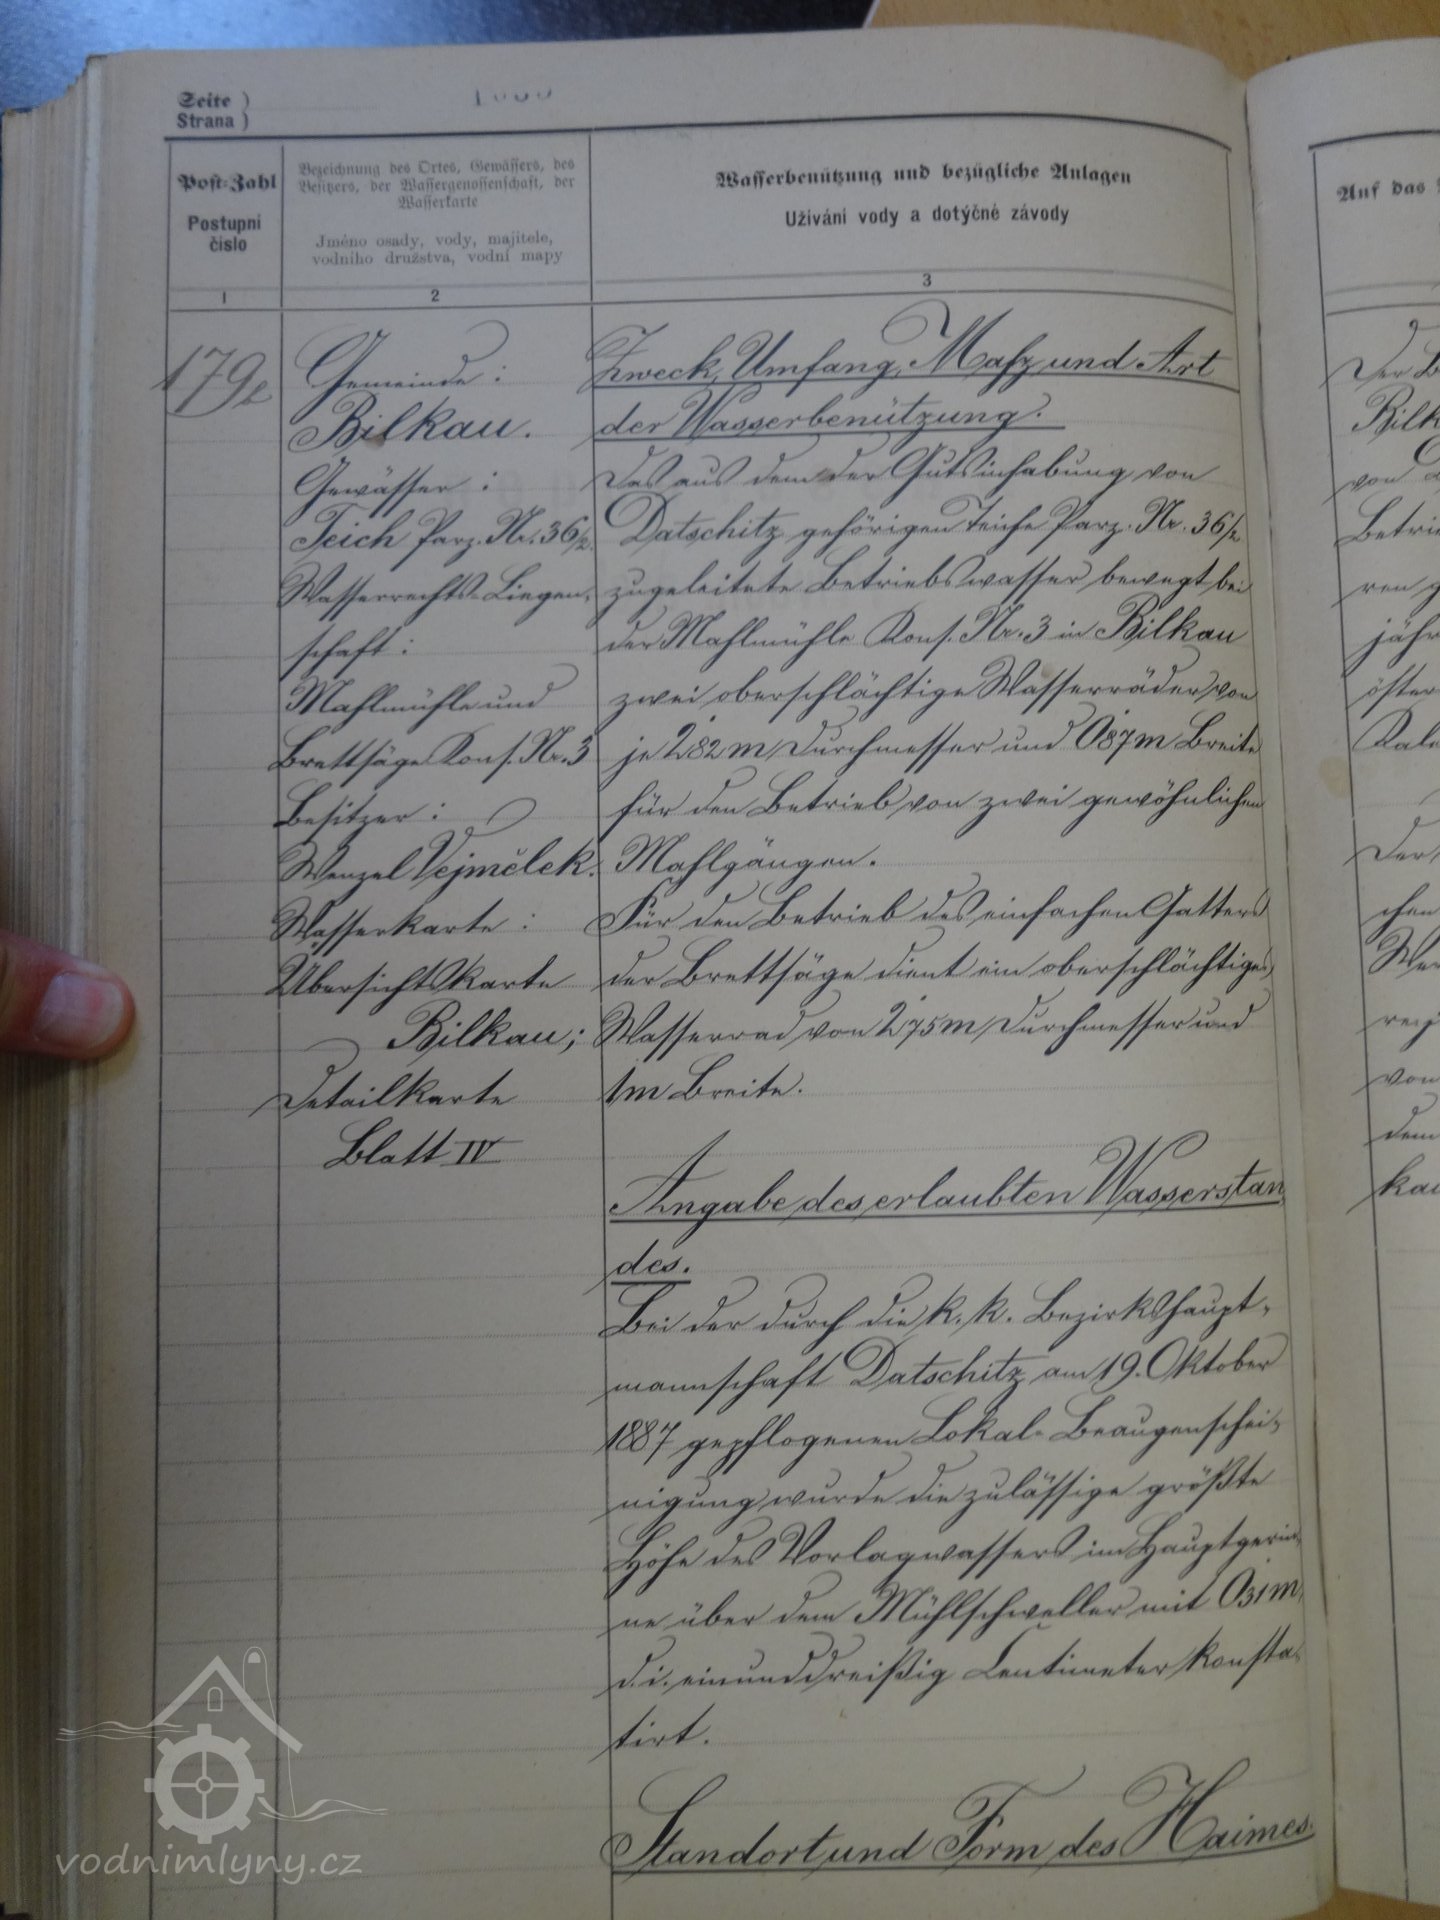 Seite )
Strana )
Post-Zahl
Postupní
číslo
1
Bezeichnung des Ortes, Gewässers, des
Besitzers, der Wassergenossenschaft, der
Wasserkarte
Jméno osady, vody, majitele,
vodního družstva, vodní mapy
2
Wasserbenützung und bezügliche Anlagen
Užívání vody a dotýčné závody
3
179
Gemeinde :
Bilkau.
Gewässer :
Teich Parz. Nr. 36/2.
Wasserrechts-Liegen-
schaft :
Mahlmühle und
Brettsäge Kons. Nr. 3
Besitzer :
Wenzel Vejmělek.
Wasserkarte :
Übersichtskarte
Bilkau;
Detailkarte
Blatt IV
Zweck, Umfang, Maß und Art
der Wasserbenützung.
Das aus dem der Gutsinhabung von
Datschitz gehörigen Teiche Parz. Nr. 36/2
zugeleitete Betriebswasser bewegt bei
der Mahlmühle Kons. Nr. 3 in Bilkau
zwei oberschlächtige Wasserräder von
je 2.82 m Durchmesser und 0.87 m Breite
für den Betrieb von zwei gewöhnlichen
Mahlgängen.
Für den Betrieb des einfachen Gatters
der Brettsäge dient ein oberschlächtiges
Wasserrad von 2.75 m Durchmesser und
1 m Breite.
Angabe des erlaubten Wasserstan-
des.
Bei der durch die k. k. Bezirkshaupt-
mannschaft Datschitz am 19. Oktober
1887 gepflogenen Lokal-Beaugenschei-
nigung wurde die zulässige größte
Höhe des Vorlagwassers im Hauptgerin-
ne über dem Mühlschweller mit 0.31 m,
d. i. einunddreißig Centimeter konsta-
tirt.
Standort und Form des Haimes.
Auf das
Der B
Bilk
von
Betrie
ren g
jähr
öster
Kale
Der
chen
Wer
von
dem
kau
vodnimlyny.cz